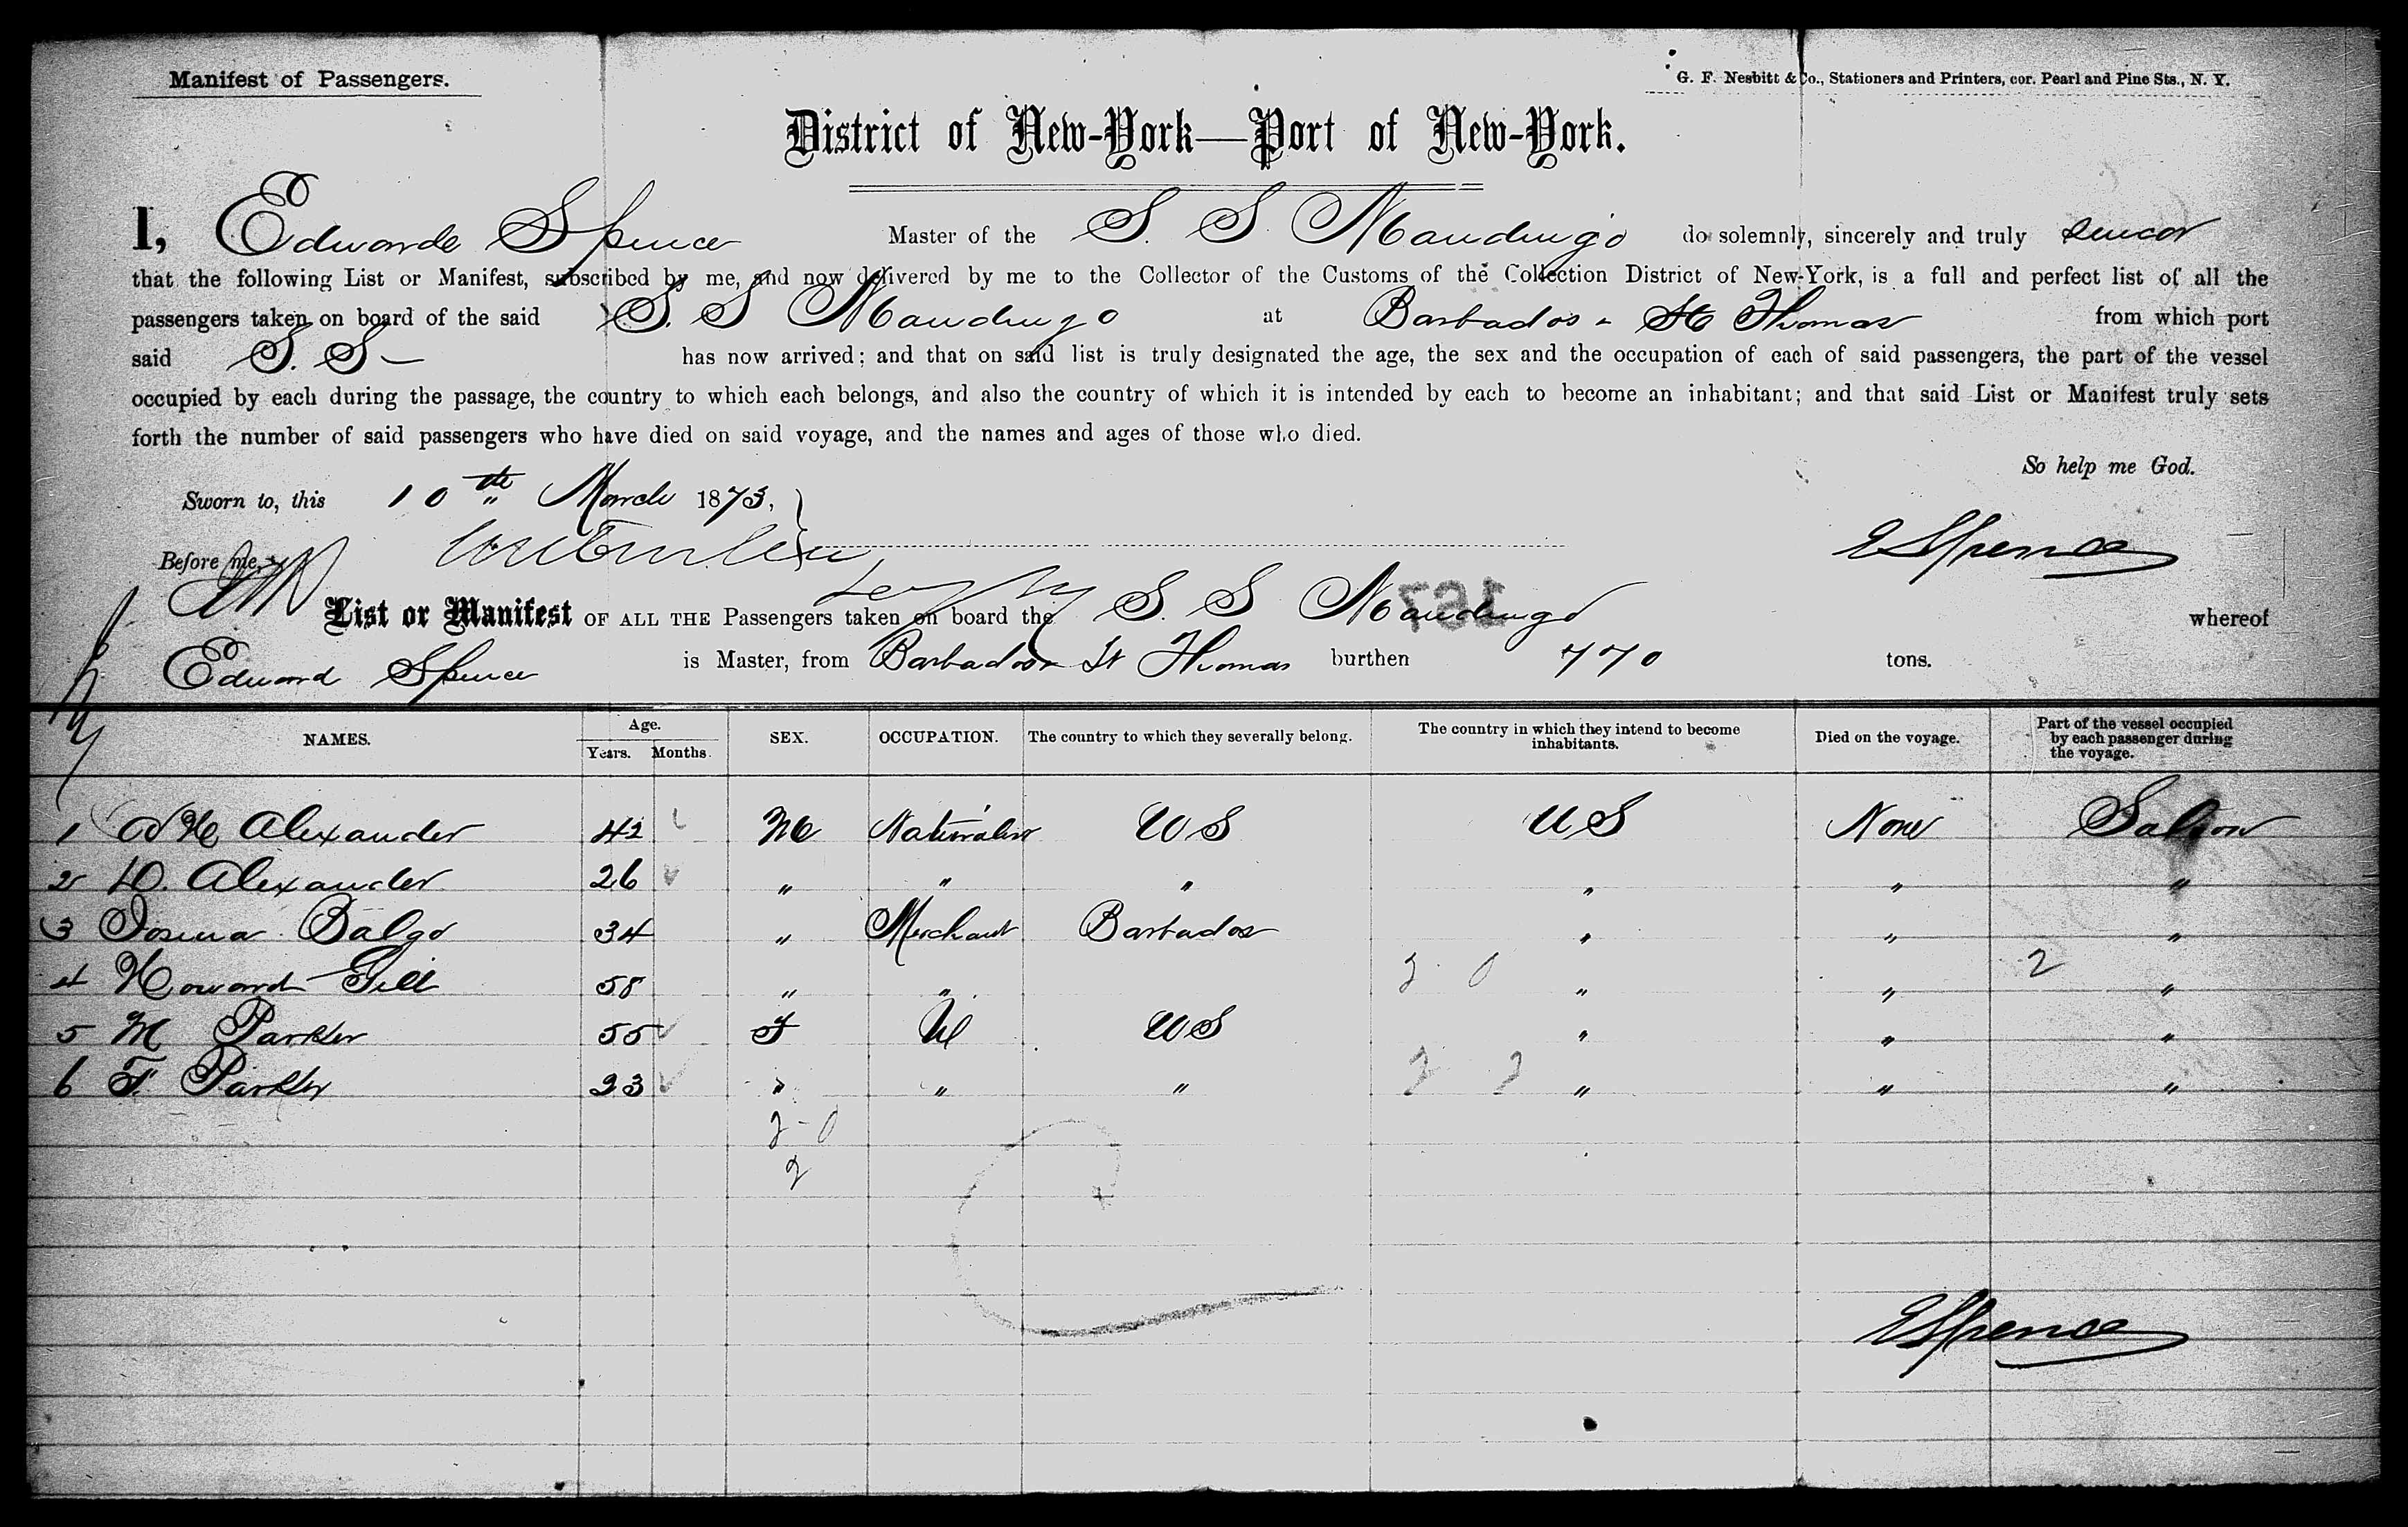 Manifest of Passengers.
G. F. Nesbitt & Co., Stationers and Printers, cor. Pearl and Pine Sts., N. Y.
District of New-York—Port of New-York.
I, Edwarde Spence Master of the S. S. Mandingo do solemnly, sincerely and truly swear
that the following List or Manifest, subscribed by me, and now delivered by me to the Collector of the Customs of the Collection District of New-York, is a full and perfect list of all the
passengers taken on board of the said S. S Mandingo at Barbados - St Thomas from which port
said S. S- has now arrived; and that on said list is truly designated the age, the sex and the occupation of each of said passengers, the part of the vessel
occupied by each during the passage, the country to which each belongs, and also the country of which it is intended by each to become an inhabitant; and that said List or Manifest truly sets
forth the number of said passengers who have died on said voyage, and the names and ages of those who died.
So help me God.
Sworn to, this 10th March 1873,
Before me,
E Spence
List or Manifest OF ALL THE Passengers taken on board the S. S Mandingo whereof
151
Edward Spence is Master, from Barbados St Thomas burthen 770 tons.
NAMES. Age. Years. Months. SEX. OCCUPATION. The country to which they severally belong. The country in which they intend to become inhabitants. Died on the voyage. Part of the vessel occupied by each passenger during the voyage.
1 Alexander 42 M Naturalist US US None Saloon
2 D. Alexander 26 " " " " " "
3 Balgo 34 " Merchant Barbados " " "
4 Howard Gill 58 " " " " "
2 0 2
5 M Parker 55 F US " " "
6 F. Parker 23 " " " " " "
2 2
2-0
2
E Spence